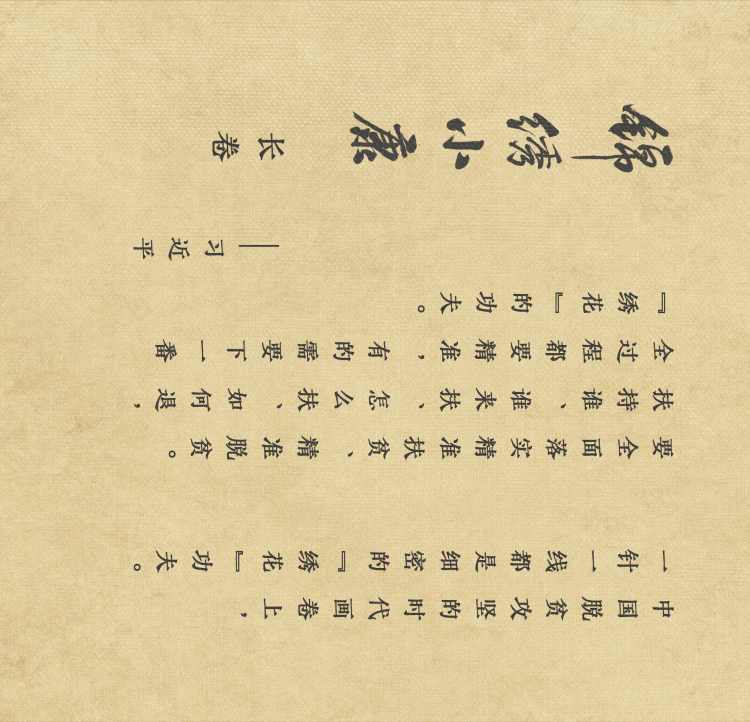 中国脱贫攻坚的时代画卷上，
一针一线都是细密的『绣花』功夫。
要全面落实精准扶贫、精准脱贫。
扶持谁、谁来扶、怎么扶、如何退，
全过程都要精准，有的需要下一番
『绣花』的功夫。
——习近平
锦绣小康长卷